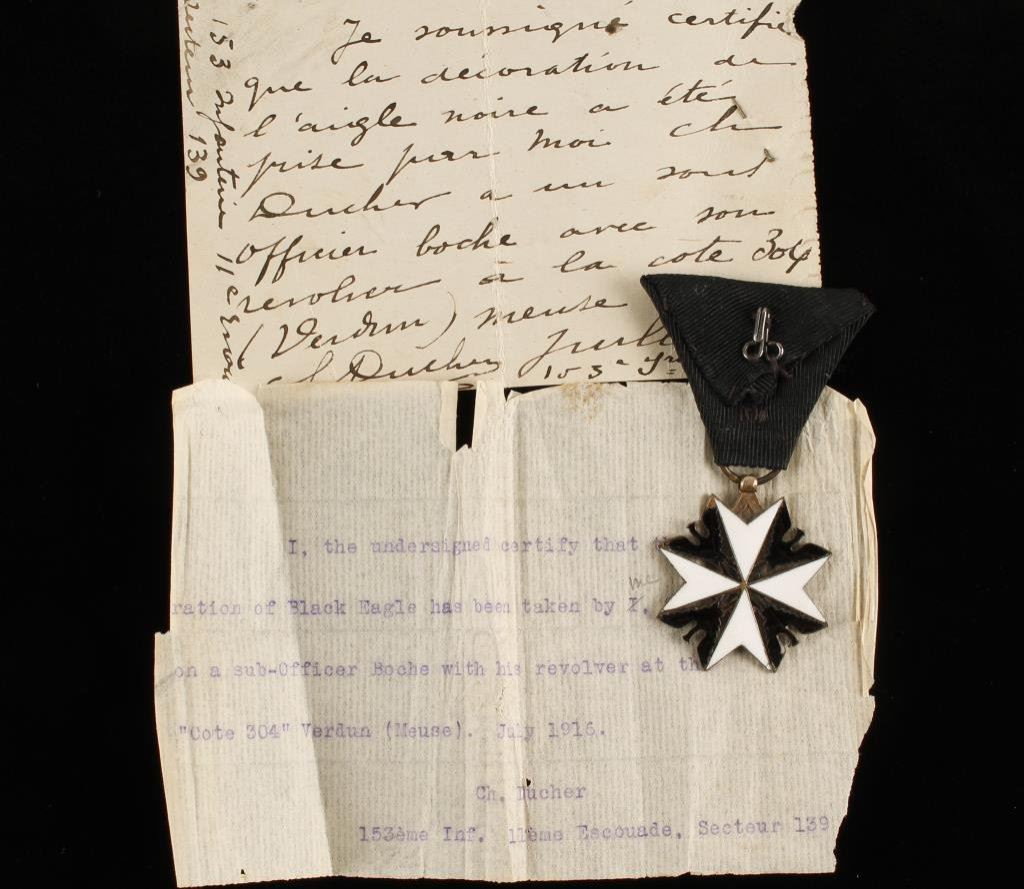 Je soussigné certifie
que la decoration de
l'aigle noire a été
prise par moi ch
Ducher a un sous
officier boche avec son
revolver a la cote 304
(Verdun) meuse
Ducher Juill
153e
153 Infanterie 11e
139
I, the undersigned certify that
ration of Black Eagle has been taken by I,
me
on a sub-Officer Boche with his revolver at th
"Cote 304" Verdun (Meuse). July 1916.
Ch. Ducher
153ème Inf. 11ème Escouade, Secteur 139